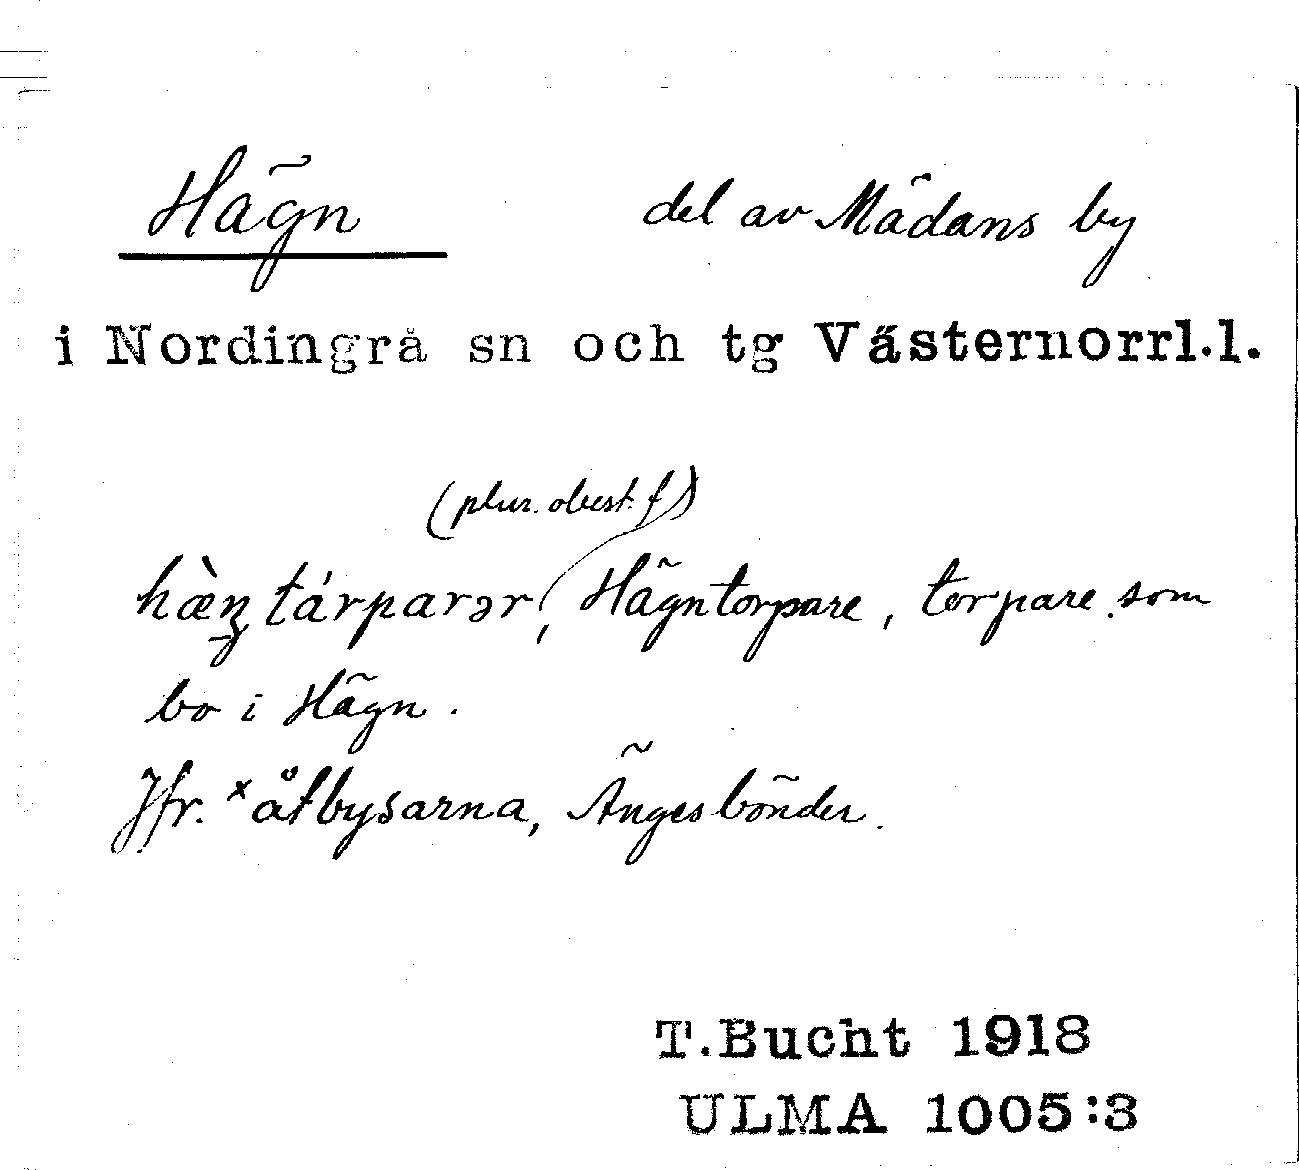 Hägn del av Mädans by
i Nordingrå sn och tg Västernorrl.l.
(plur. obest. f)
hæ̀ŋ tárparər, Hägntorpare, torpare som
bo i Hägn.
Jfr. ˣåtbysarna, Ängesbönder.
T.Bucht 1918
ULMA 1005:3